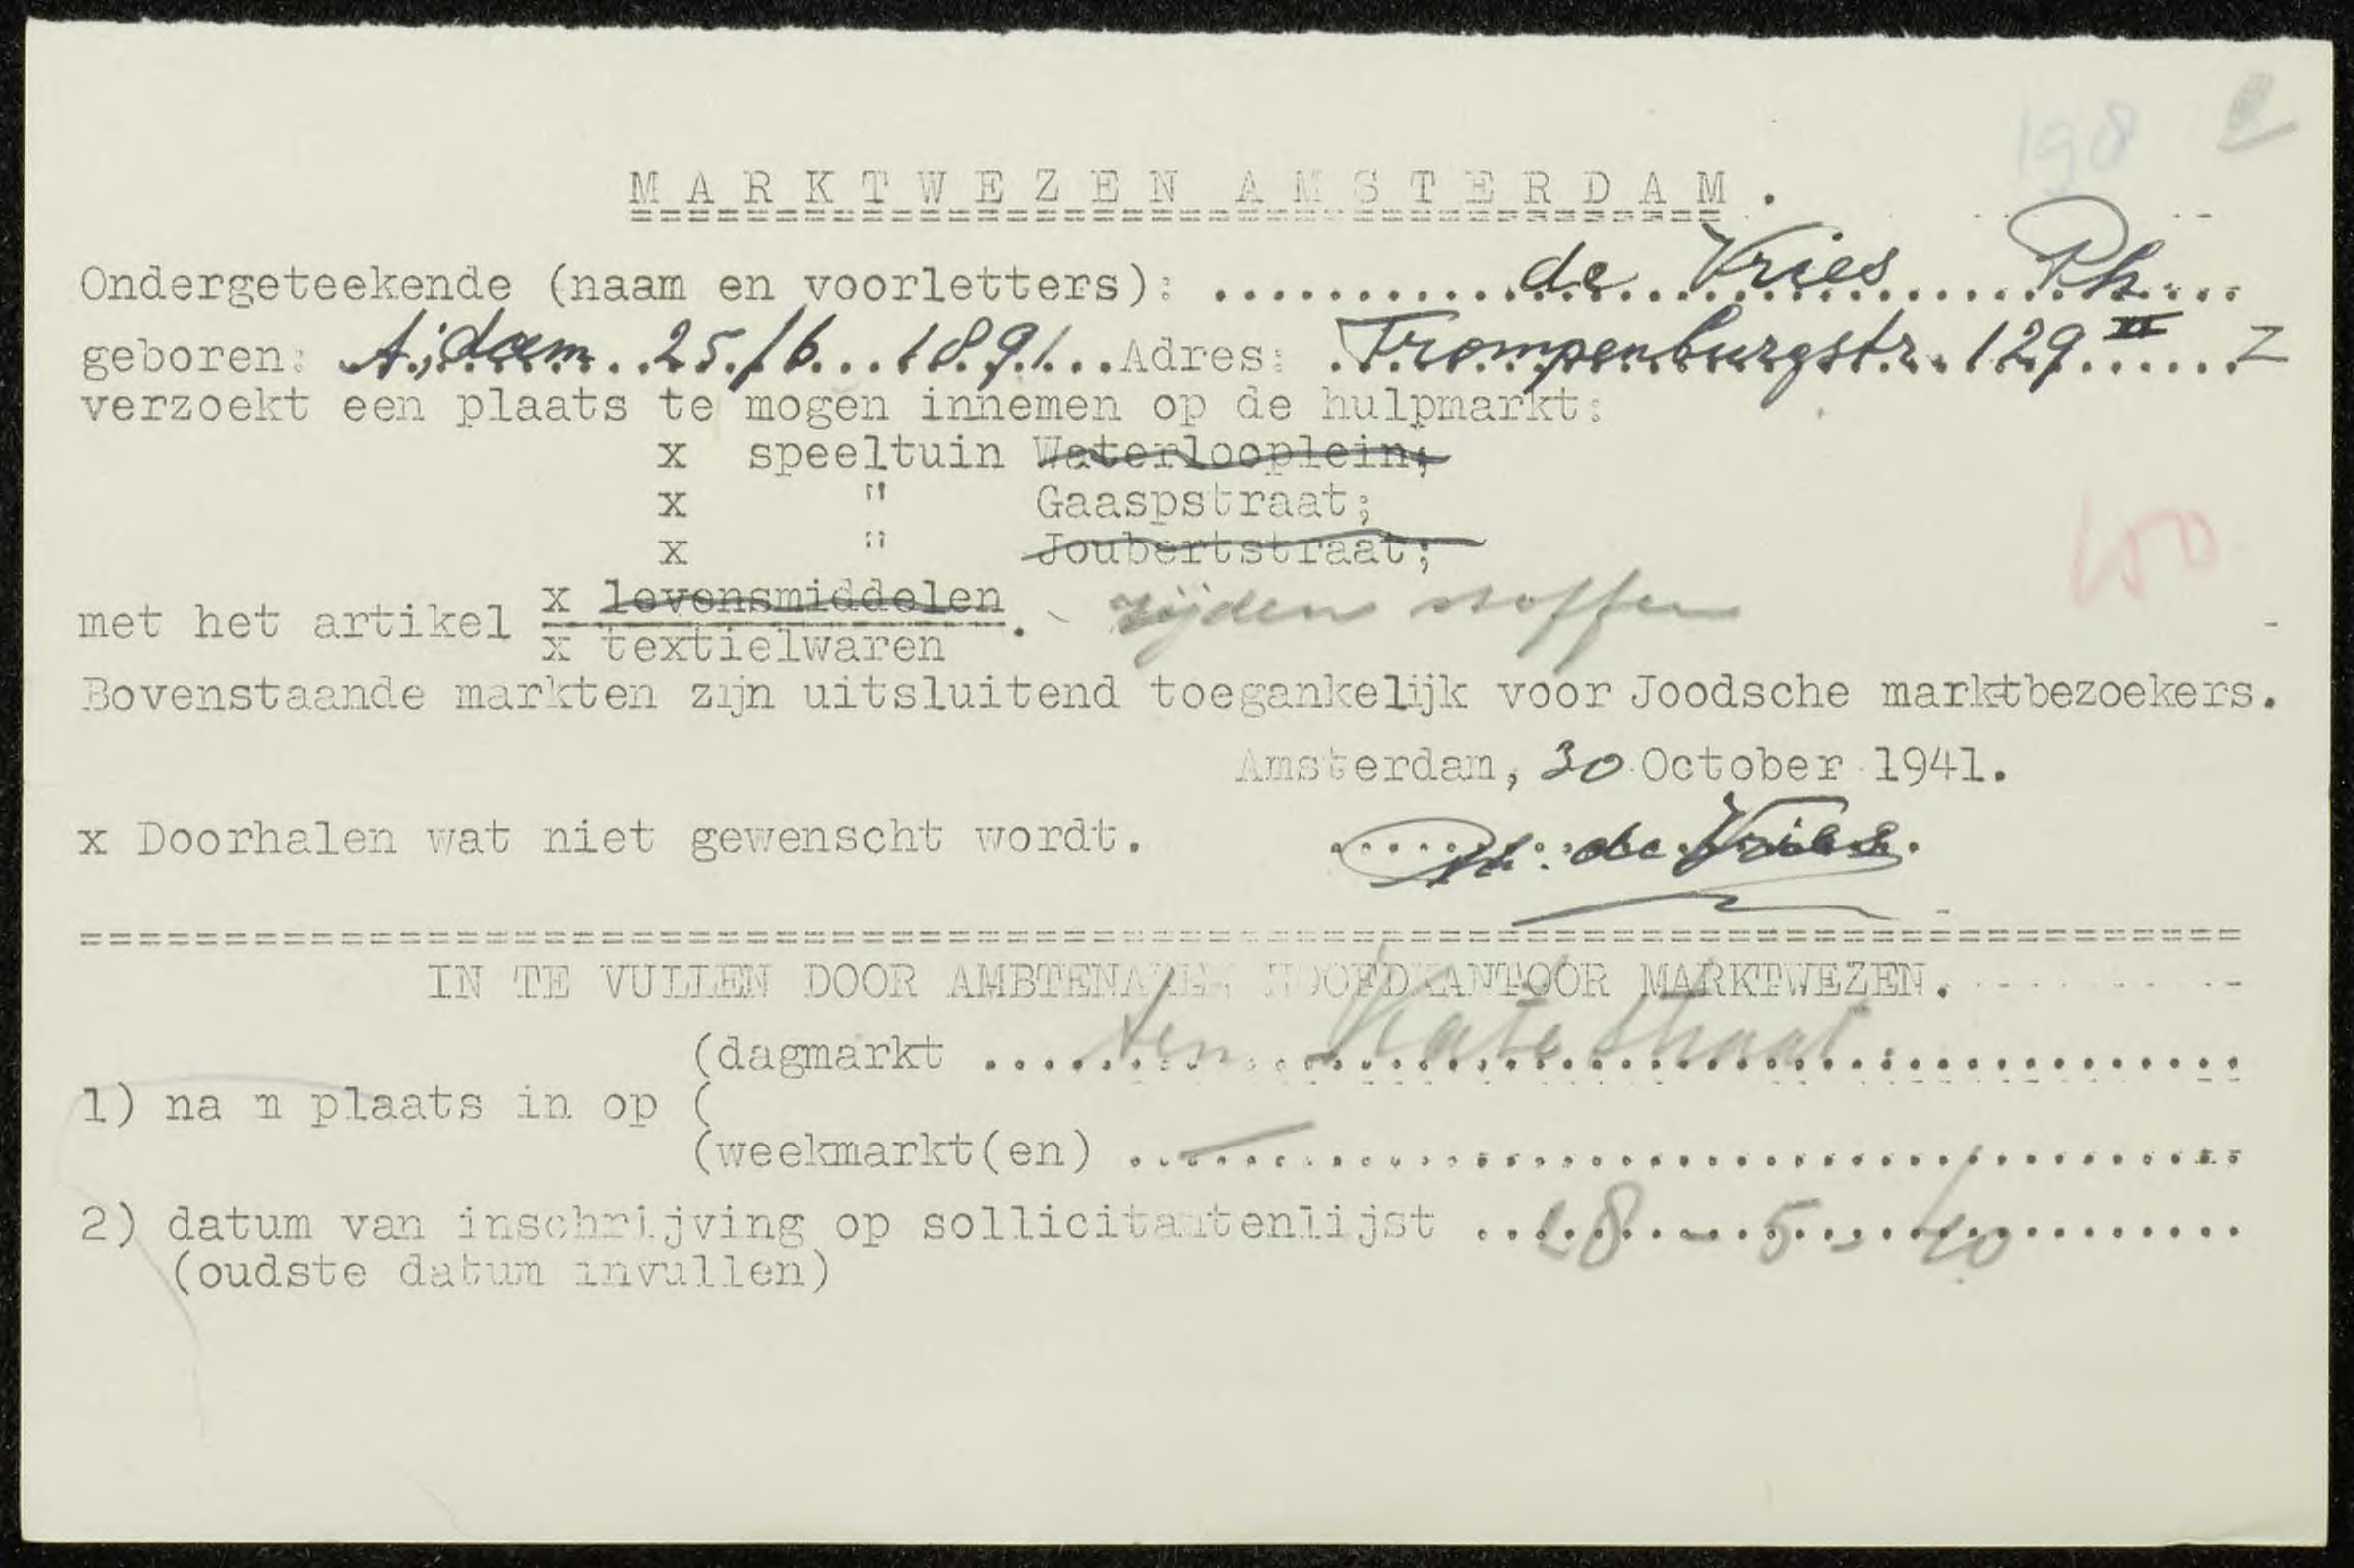 198
MARKTWEZEN AMSTERDAM.
Ondergeteekende (naam en voorletters): de Vries Ph
geboren: A;dam 25/6 1891 Adres: Trompenburgstr. 129 II Z
verzoekt een plaats te mogen innemen op de hulpmarkt:
x speeltuin Waterlooplein;
x " Gaaspstraat;
x " Joubertstraat;
met het artikel x levensmiddelen. zijden stoffen
x textielwaren
Bovenstaande markten zijn uitsluitend toegankelijk voor Joodsche marktbezoekers.
Amsterdam, 30 October 1941.
x Doorhalen wat niet gewenscht wordt. Ph. de Vries.
IN TE VULLEN DOOR AMBTENAREN HOOFDKANTOOR MARKTWEZEN.
(dagmarkt ten Kate straat
1) na m plaats in op (
(weekmarkt(en) —
2) datum van inschrijving op sollicitantenlijst 28 - 5 - 40
(oudste datum invullen)